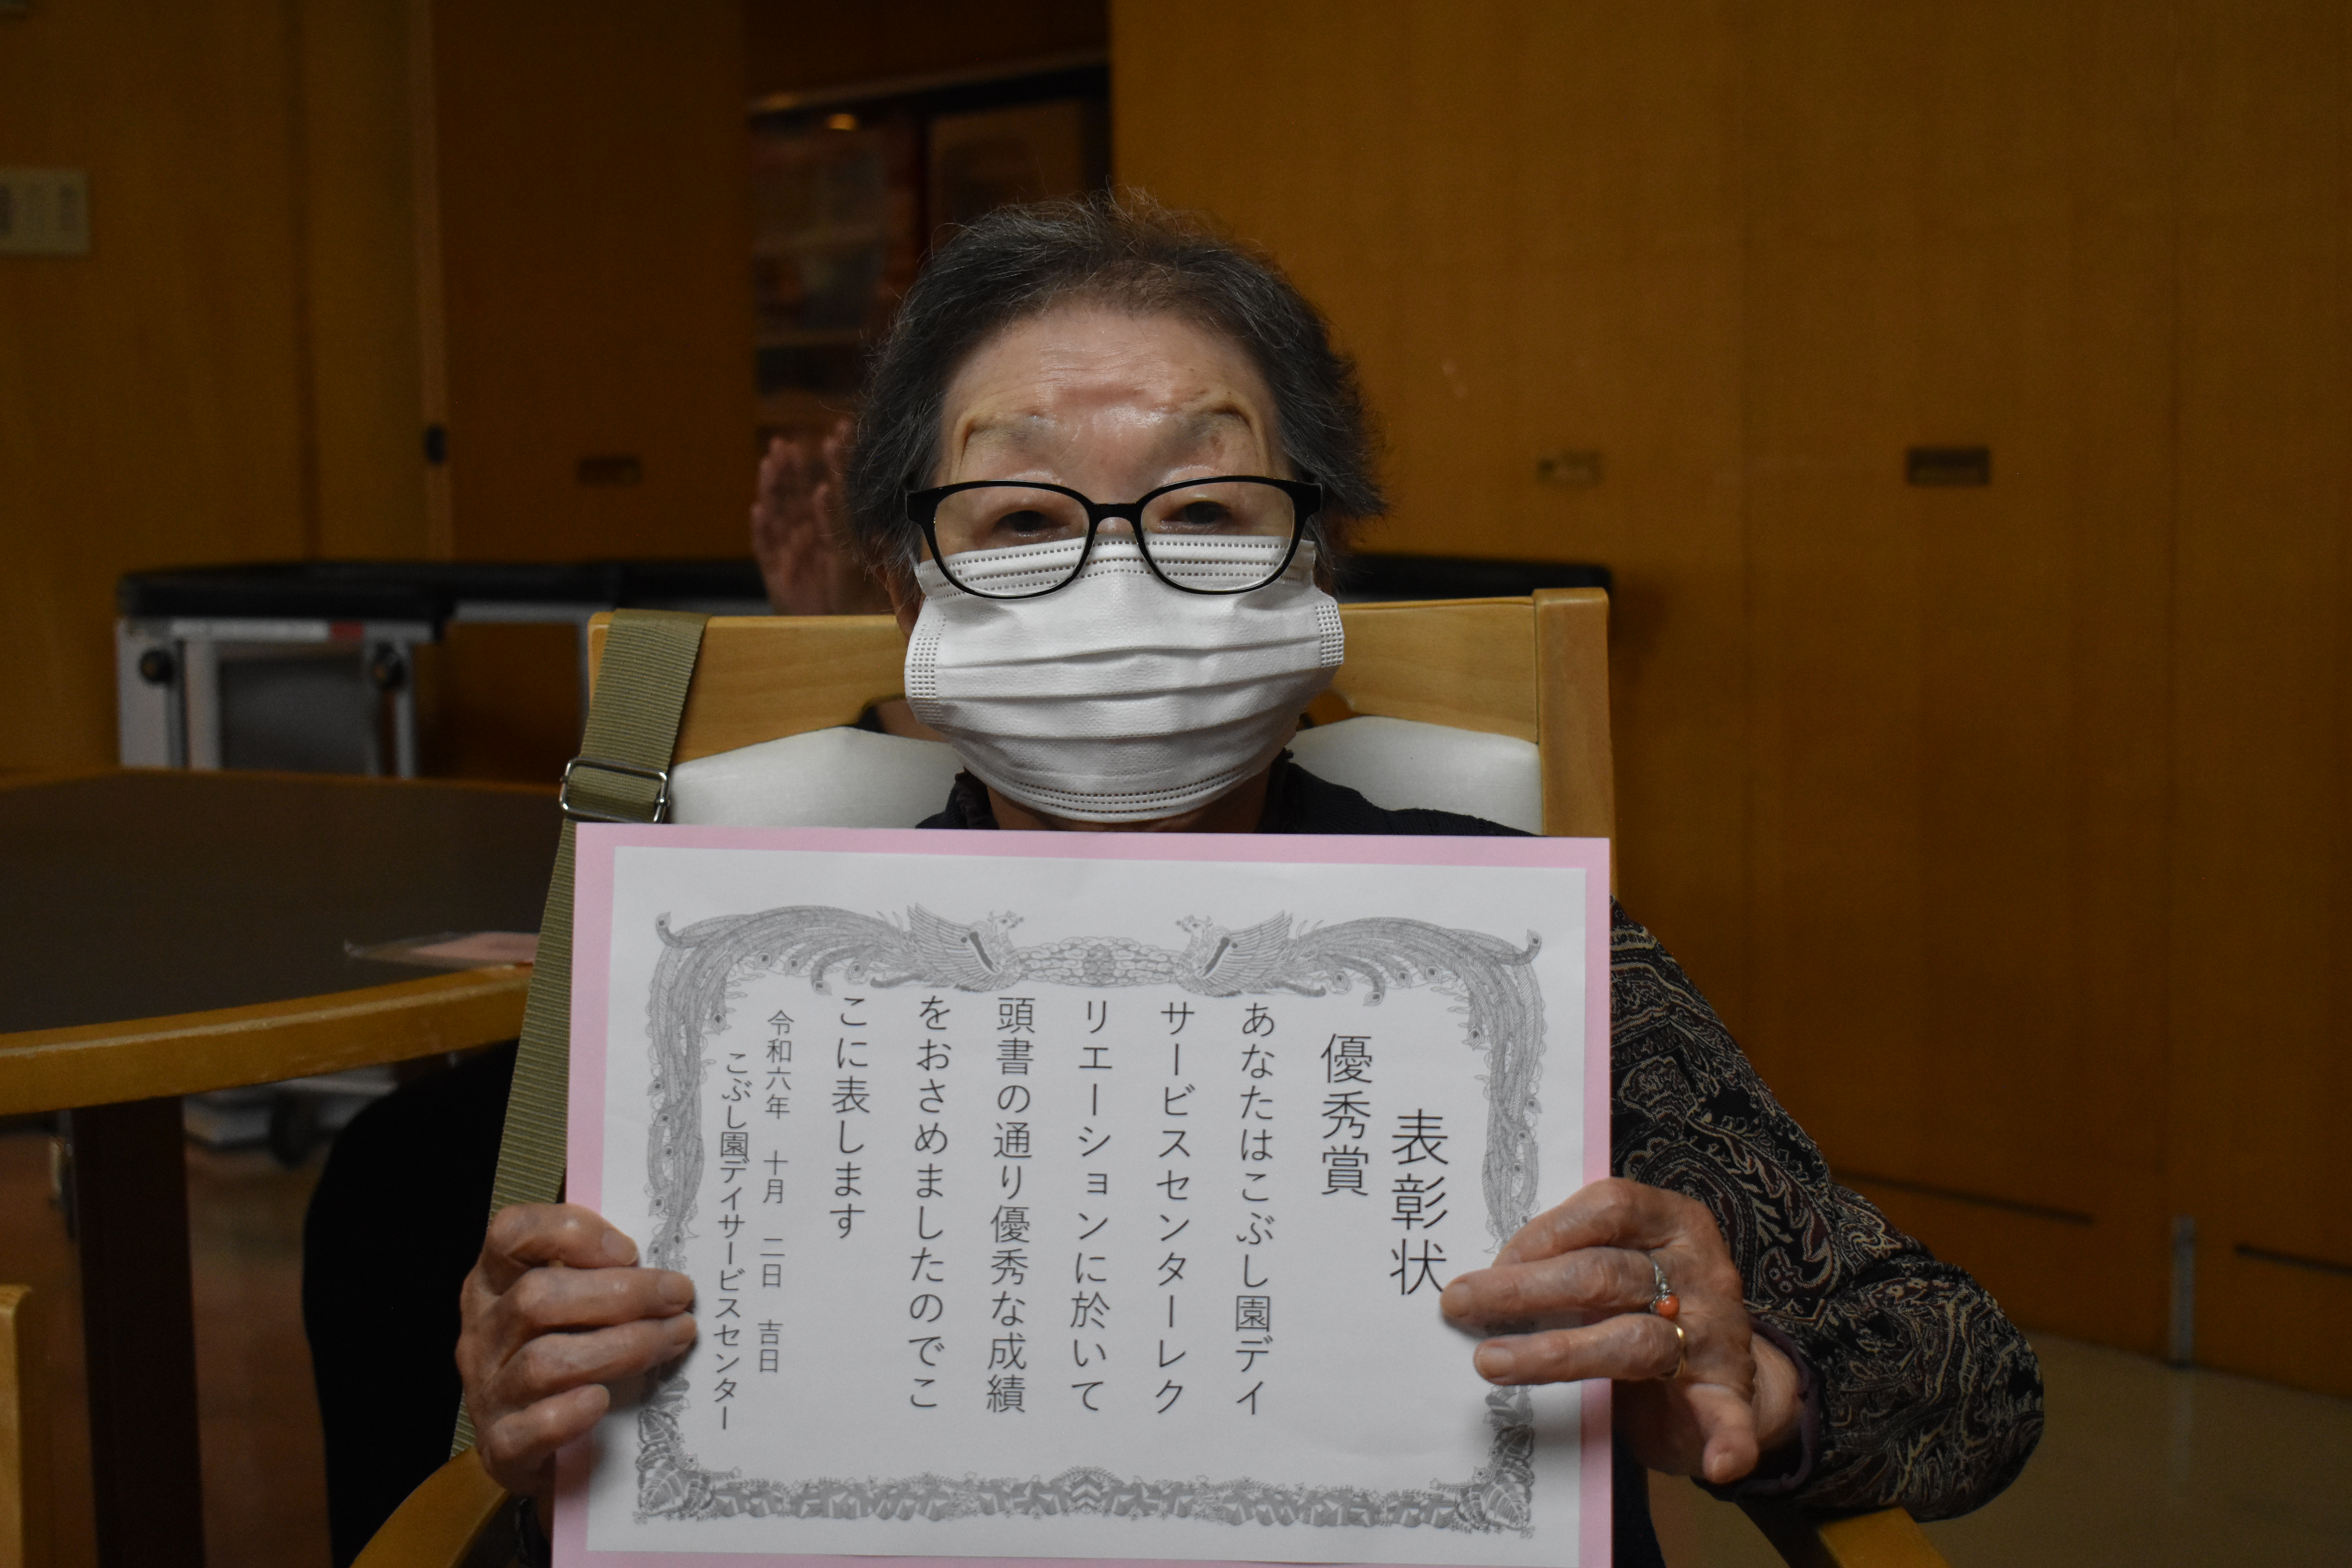 表彰状
優秀賞
あなたはこぶし園デイ
サービスセンターレク
リエーションに於いて
頭書の通り優秀な成績
をおさめましたのでこ
こに表します
令和六年　十月　二日　吉日
こぶし園デイサービスセンター